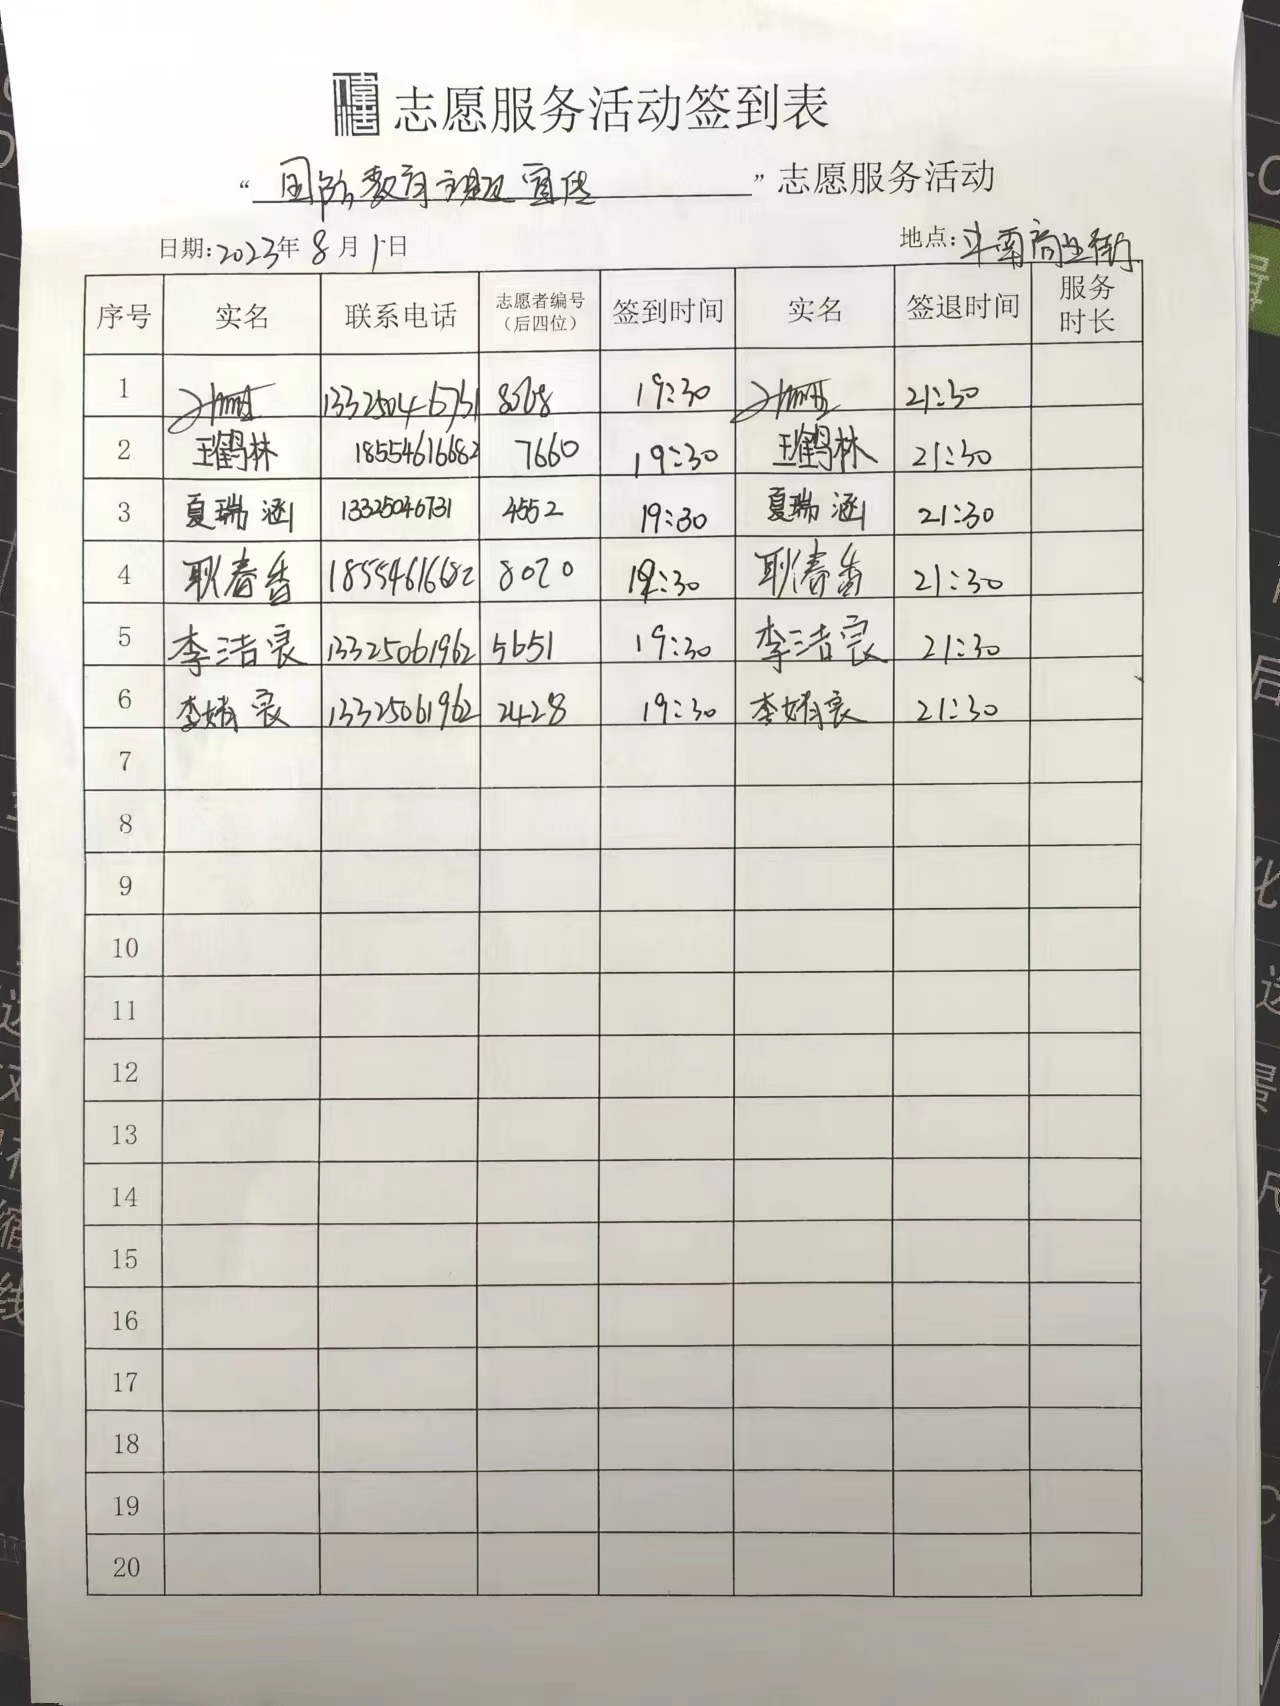 志愿服务活动签到表
“国际教育课程宣传”志愿服务活动
日期:2023年8月1日 地点:斗南商业街
序号 实名 联系电话 志愿者编号（后四位） 签到时间 实名 签退时间 服务时长
1 13325046731 8368 19:30 21:30
2 王鹤林 18554616682 7660 19:30 王鹤林 21:30
3 夏瑞涵 13325046731 4552 19:30 夏瑞涵 21:30
4 耿春香 18554616682 8070 19:30 耿春香 21:30
5 李洁宸 13325061962 5651 19:30 李洁宸 21:30
6 李婧宸 13325061962 2428 19:30 李婧宸 21:30
7
8
9
10
11
12
13
14
15
16
17
18
19
20